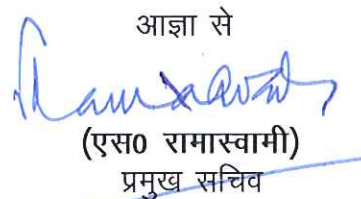 आज्ञा से
(एस0 रामास्वामी)
प्रमुख सचिव